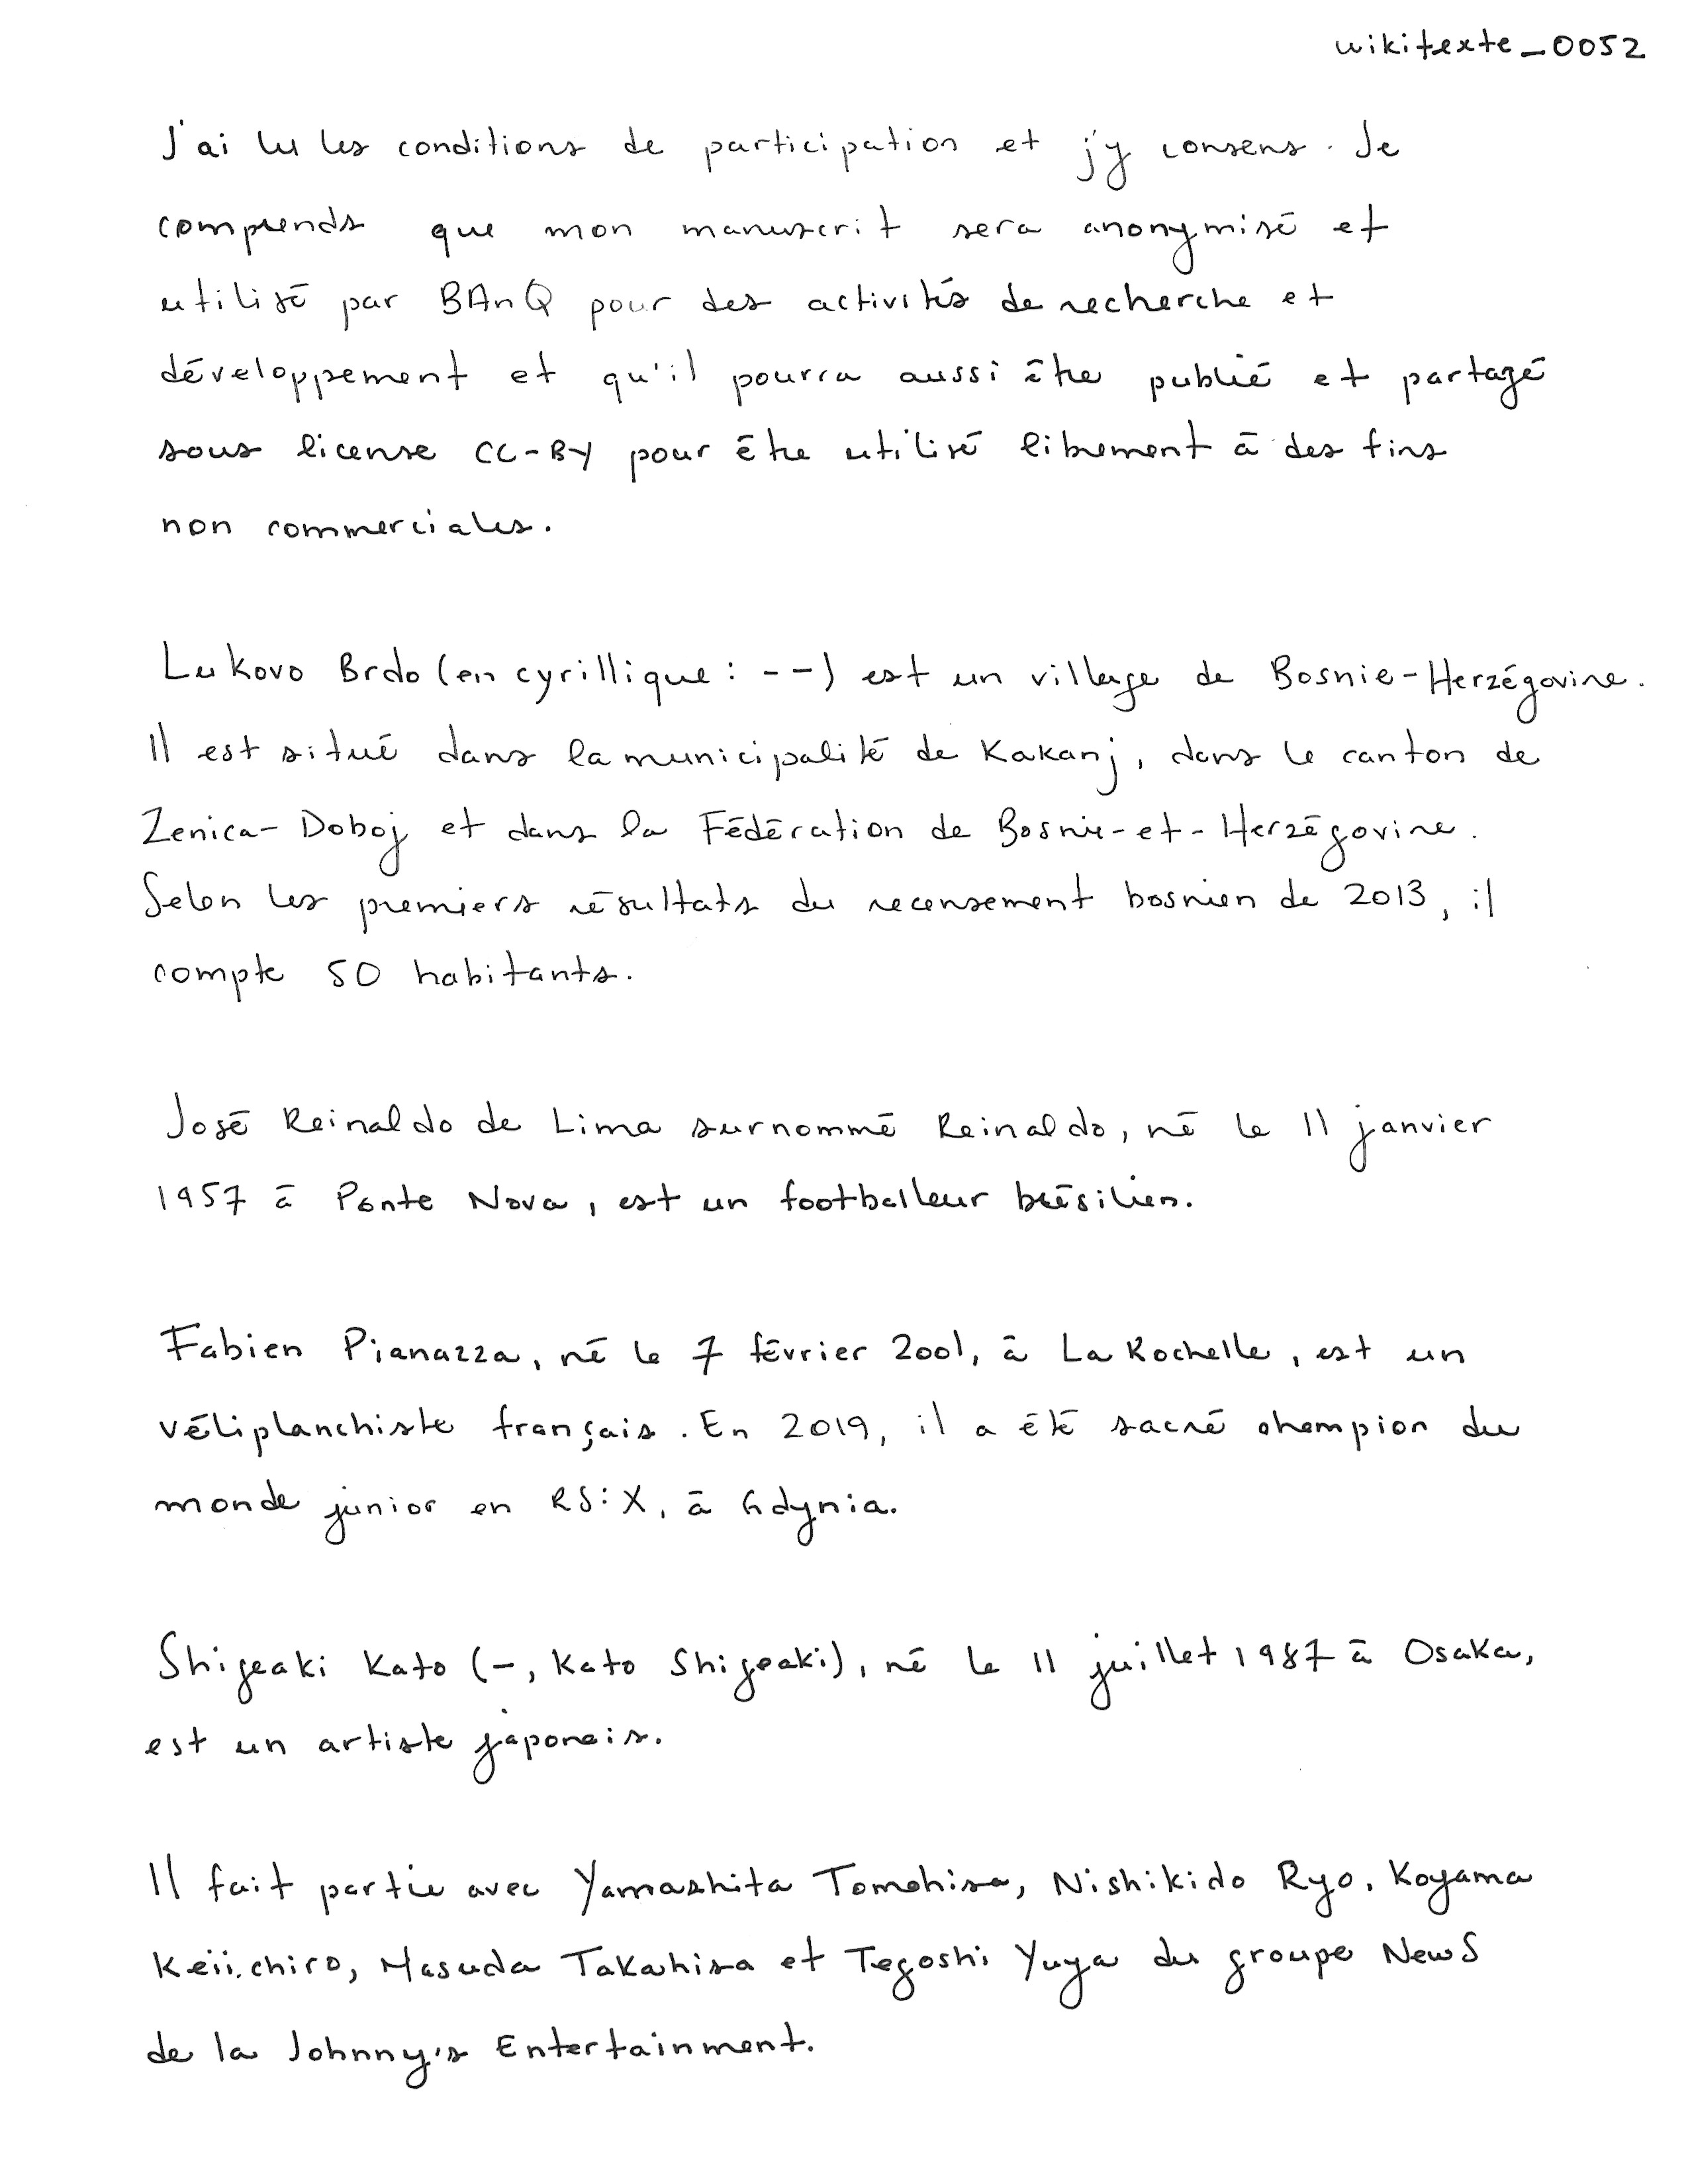 wikitexte_0052
J'ai lu les conditions de participation et j'y consens. Je
comprends que mon manuscrit sera anonymisé et
utilisé par BAnQ pour des activités de recherche et
développement et qu'il pourra aussi être publié et partagé
sous license CC-BY pour être utilisé librement à des fins
non commerciales.
Lukovo Brdo (en cyrillique : --) est un village de Bosnie-Herzégovine.
Il est situé dans la municipalité de Kakanj, dans le canton de
Zenica-Doboj et dans la Fédération de Bosnie-et-Herzégovine.
Selon les premiers résultats du recensement bosnien de 2013, il
compte 50 habitants.
José Reinaldo de Lima surnommé Reinaldo, né le 11 janvier
1957 à Ponte Nova, est un footballeur brésilien.
Fabien Pianazza, né le 7 février 2001, à La Rochelle, est un
véliplanchiste français. En 2019, il a été sacré champion du
monde junior en RS:X, à Gdynia.
Shigeaki Kato (-, Kato Shigeaki), né le 11 juillet 1987 à Osaka,
est un artiste japonais.
Il fait partie avec Yamashita Tomohisa, Nishikido Ryo, Koyama
Keiichiro, Masuda Takahisa et Tegoshi Yuya du groupe NewS
de la Johnny's Entertainment.